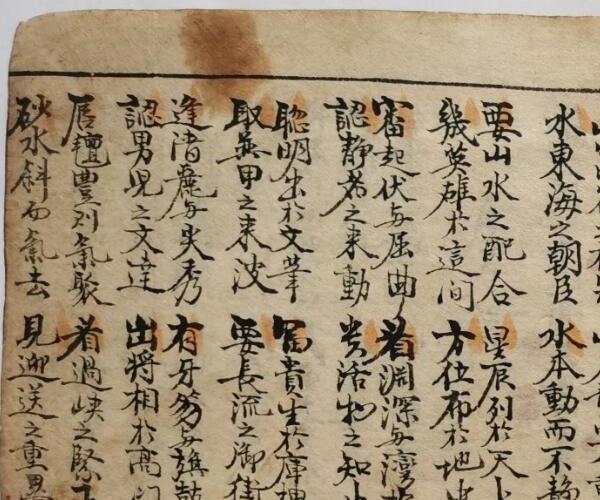 水東海之朝臣 水本動而不静
要山水之配合 星辰列於天
幾英雄於這間 方位布於地
審起伏与屈曲 看淵深与湾
認静者之来動 贵活物之知
聪明出於文筆 富貴生於庫
取 甲之来波 要長流之御街
逢 与尖秀 有牙笏与旗鼓
認男児之文達 出将相於高门
唇氊豊則氣聚 看過峡之緊
砂水斜而氣去 見迎送之重